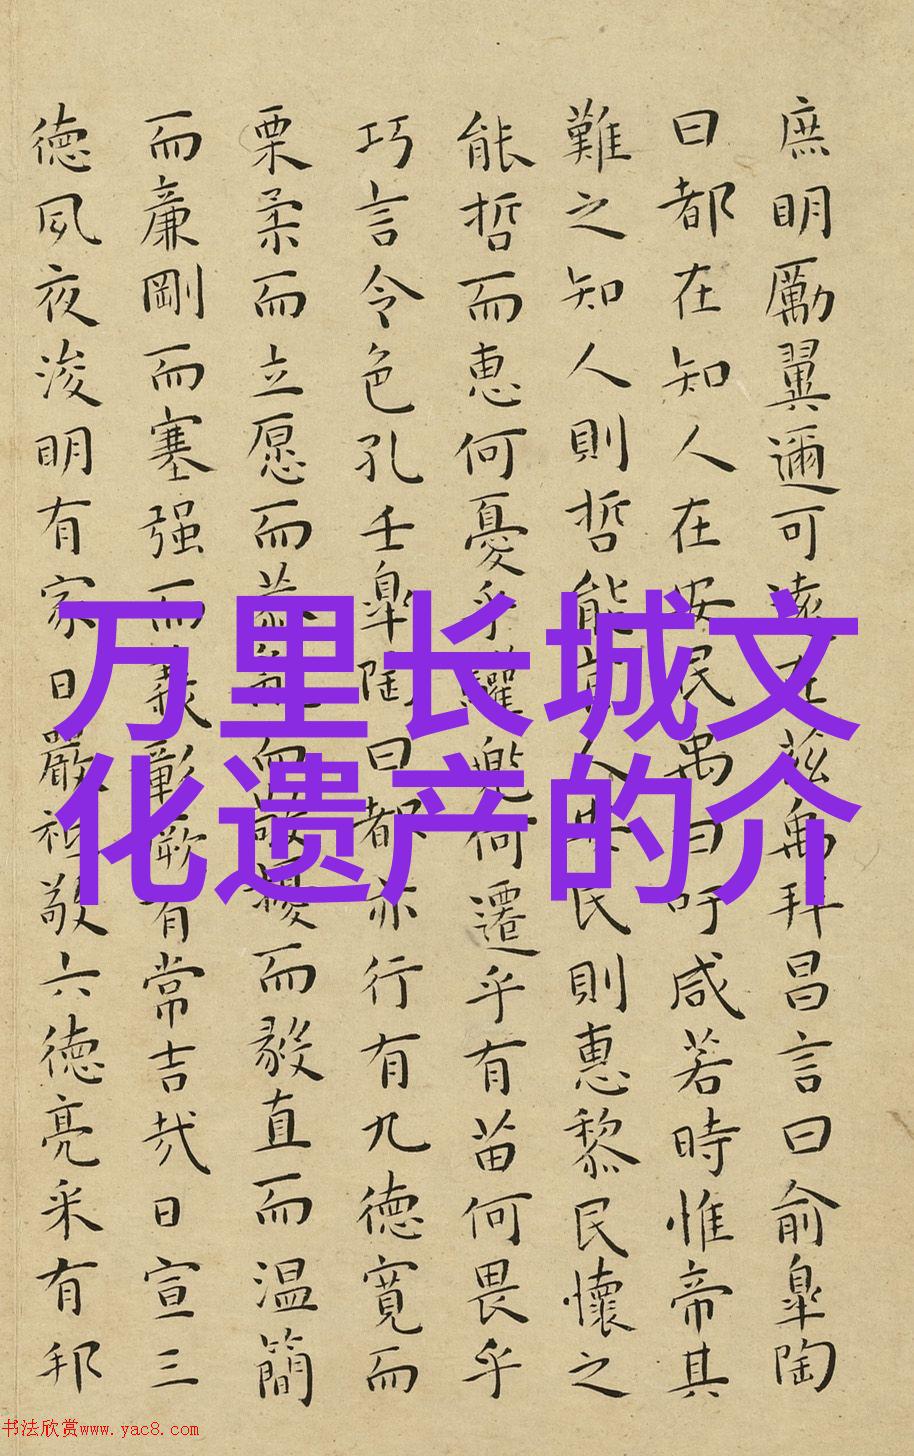 庶明勵翼邇可遠在茲禹拜昌言曰俞皐陶
曰都在知人在安民禹曰吁咸若時惟帝其
難之知人則哲能官人安民則惠黎民懷之
能哲而恵何憂乎驩兜何遷乎有苗何畏乎
巧言令色孔壬皐陶曰都亦行有九德寬而
栗柔而立愿而恭亂而敬擾而毅直而温簡
而廉剛而塞强而義彰厥有常吉哉日宣三
德夙夜浚明有家日嚴祗敬六德亮采有邦
万里长城文
化遗产的介
书法欣赏www.yac8.com